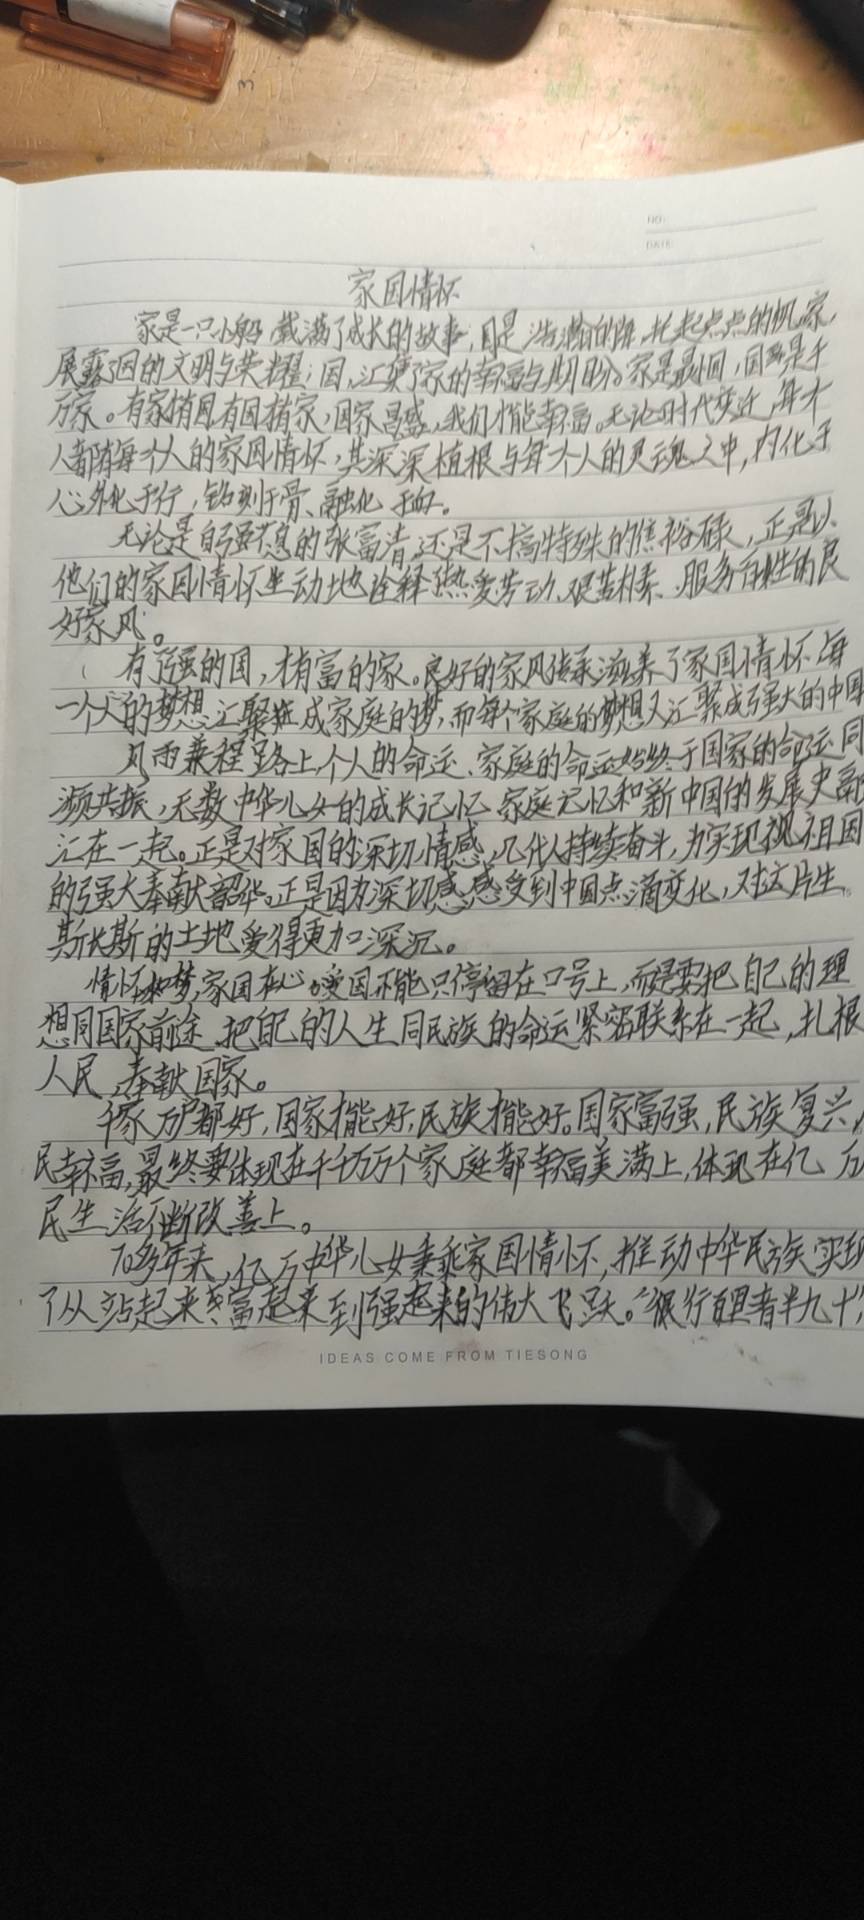 NO:
DATE:
家国情怀
家是一只小船,载满了成长的故事,国是浩瀚的海,托起点点的帆,家,
展露了国的文明与荣耀;国,汇集了家的幸福与期盼。家是最小国,国是千
万家。有家有国,有国有家,国家昌盛,我们才能幸福。无论时代变迁,每个
人都有每个人的家国情怀,其深深植根与每个人的灵魂之中,内化于
心,外化于行,铭刻于骨、融化于血。
无论是自强不息的张富清,还是不搞特殊的焦裕禄,正是以
他们的家国情怀生动地诠释热爱劳动、艰苦朴素、服务百姓的良
好家风。
有了强的国,才有富的家。良好的家风传承滋养了家国情怀,每
一个人的梦想汇聚成家庭的梦,而每个家庭的梦想又汇聚成强大的中国
风雨兼程路上,个人的命运、家庭的命运始终于国家的命运同
频共振,无数中华儿女的成长记忆、家庭记忆和新中国的发展史融
汇在一起。正是对家国的深切情感,几代人持续奋斗,为实现祖国
的强大奉献韶华。正是因为深切感受到中国点滴变化,对这片生
斯长斯的土地爱得更加深沉。
情怀如梦,家国在心。爱国不能只停留在口号上,而是要把自己的理
想同国家前途、把自己的人生同民族的命运紧密联系在一起,扎根
人民,奉献国家。
千家万户都好,国家才能好,民族才能好。国家富强,民族复兴,
民幸福,最终要体现在千千万万个家庭都幸福美满上,体现在亿万
民生活不断改善上。
70多年来,亿万中华儿女秉承家国情怀,推动中华民族实现
了从站起来、富起来到强起来的伟大飞跃。“行百里者半九十”
IDEAS COME FROM TIESONG